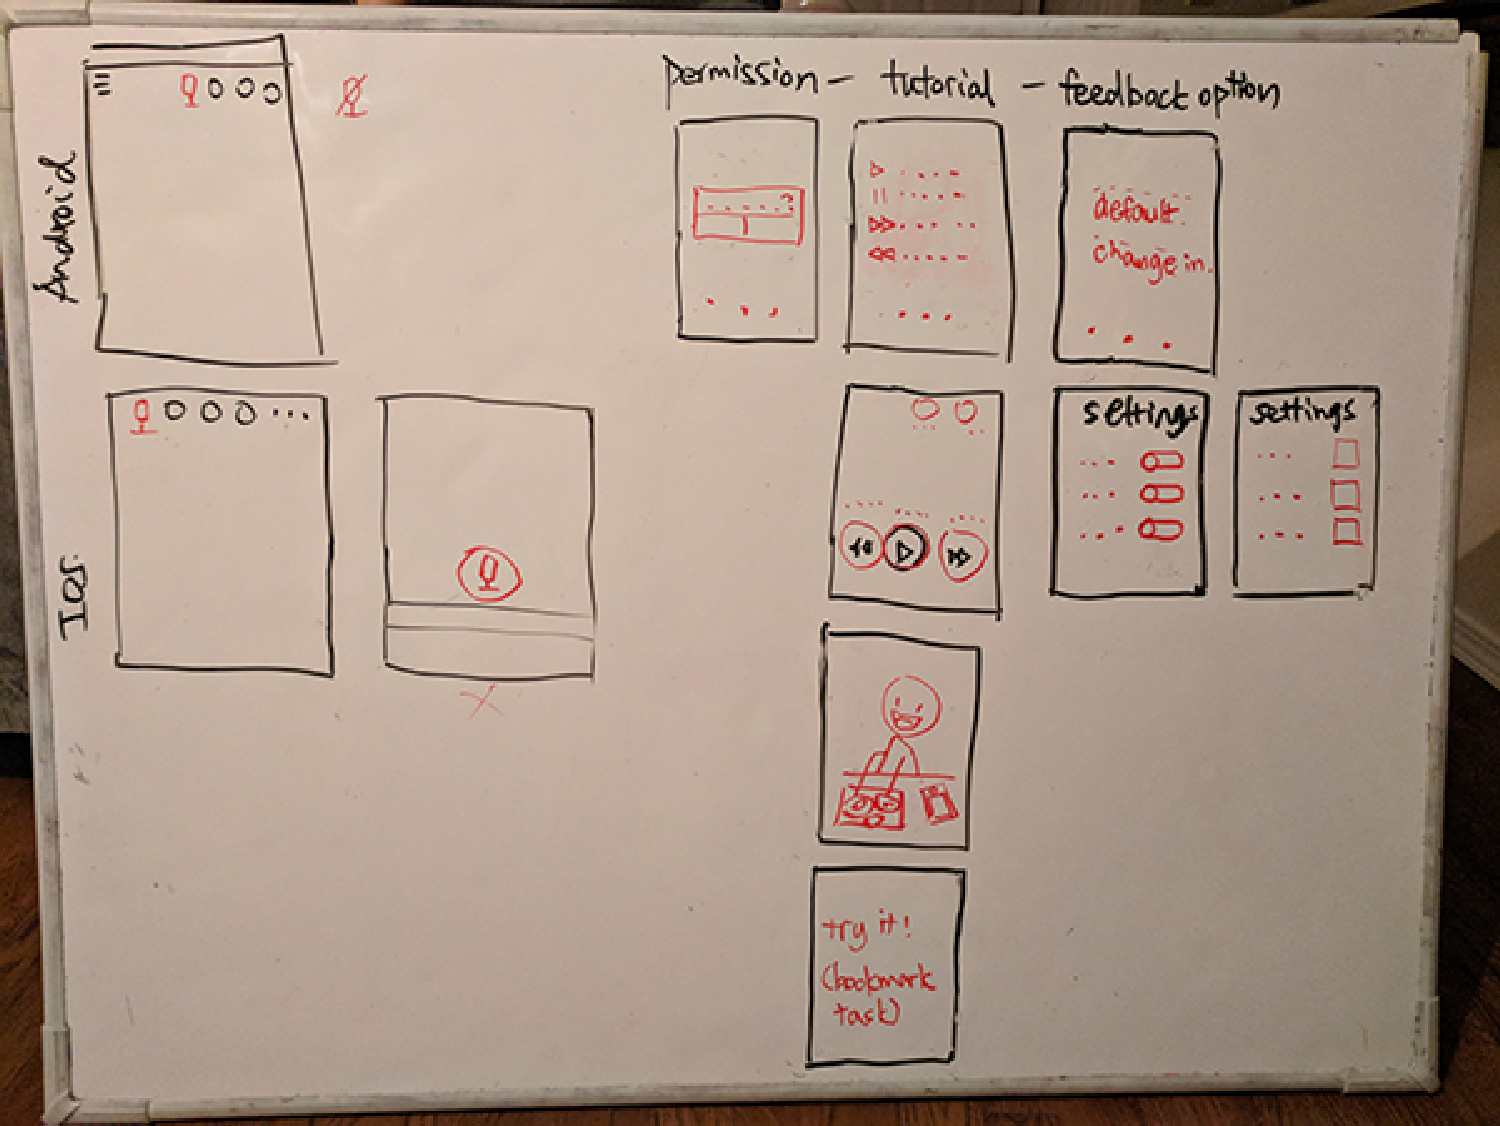 Android
permission - tutorial - feedback option
default.
change in.
IOS.
settings
settings
try it!
(bookmark
task)